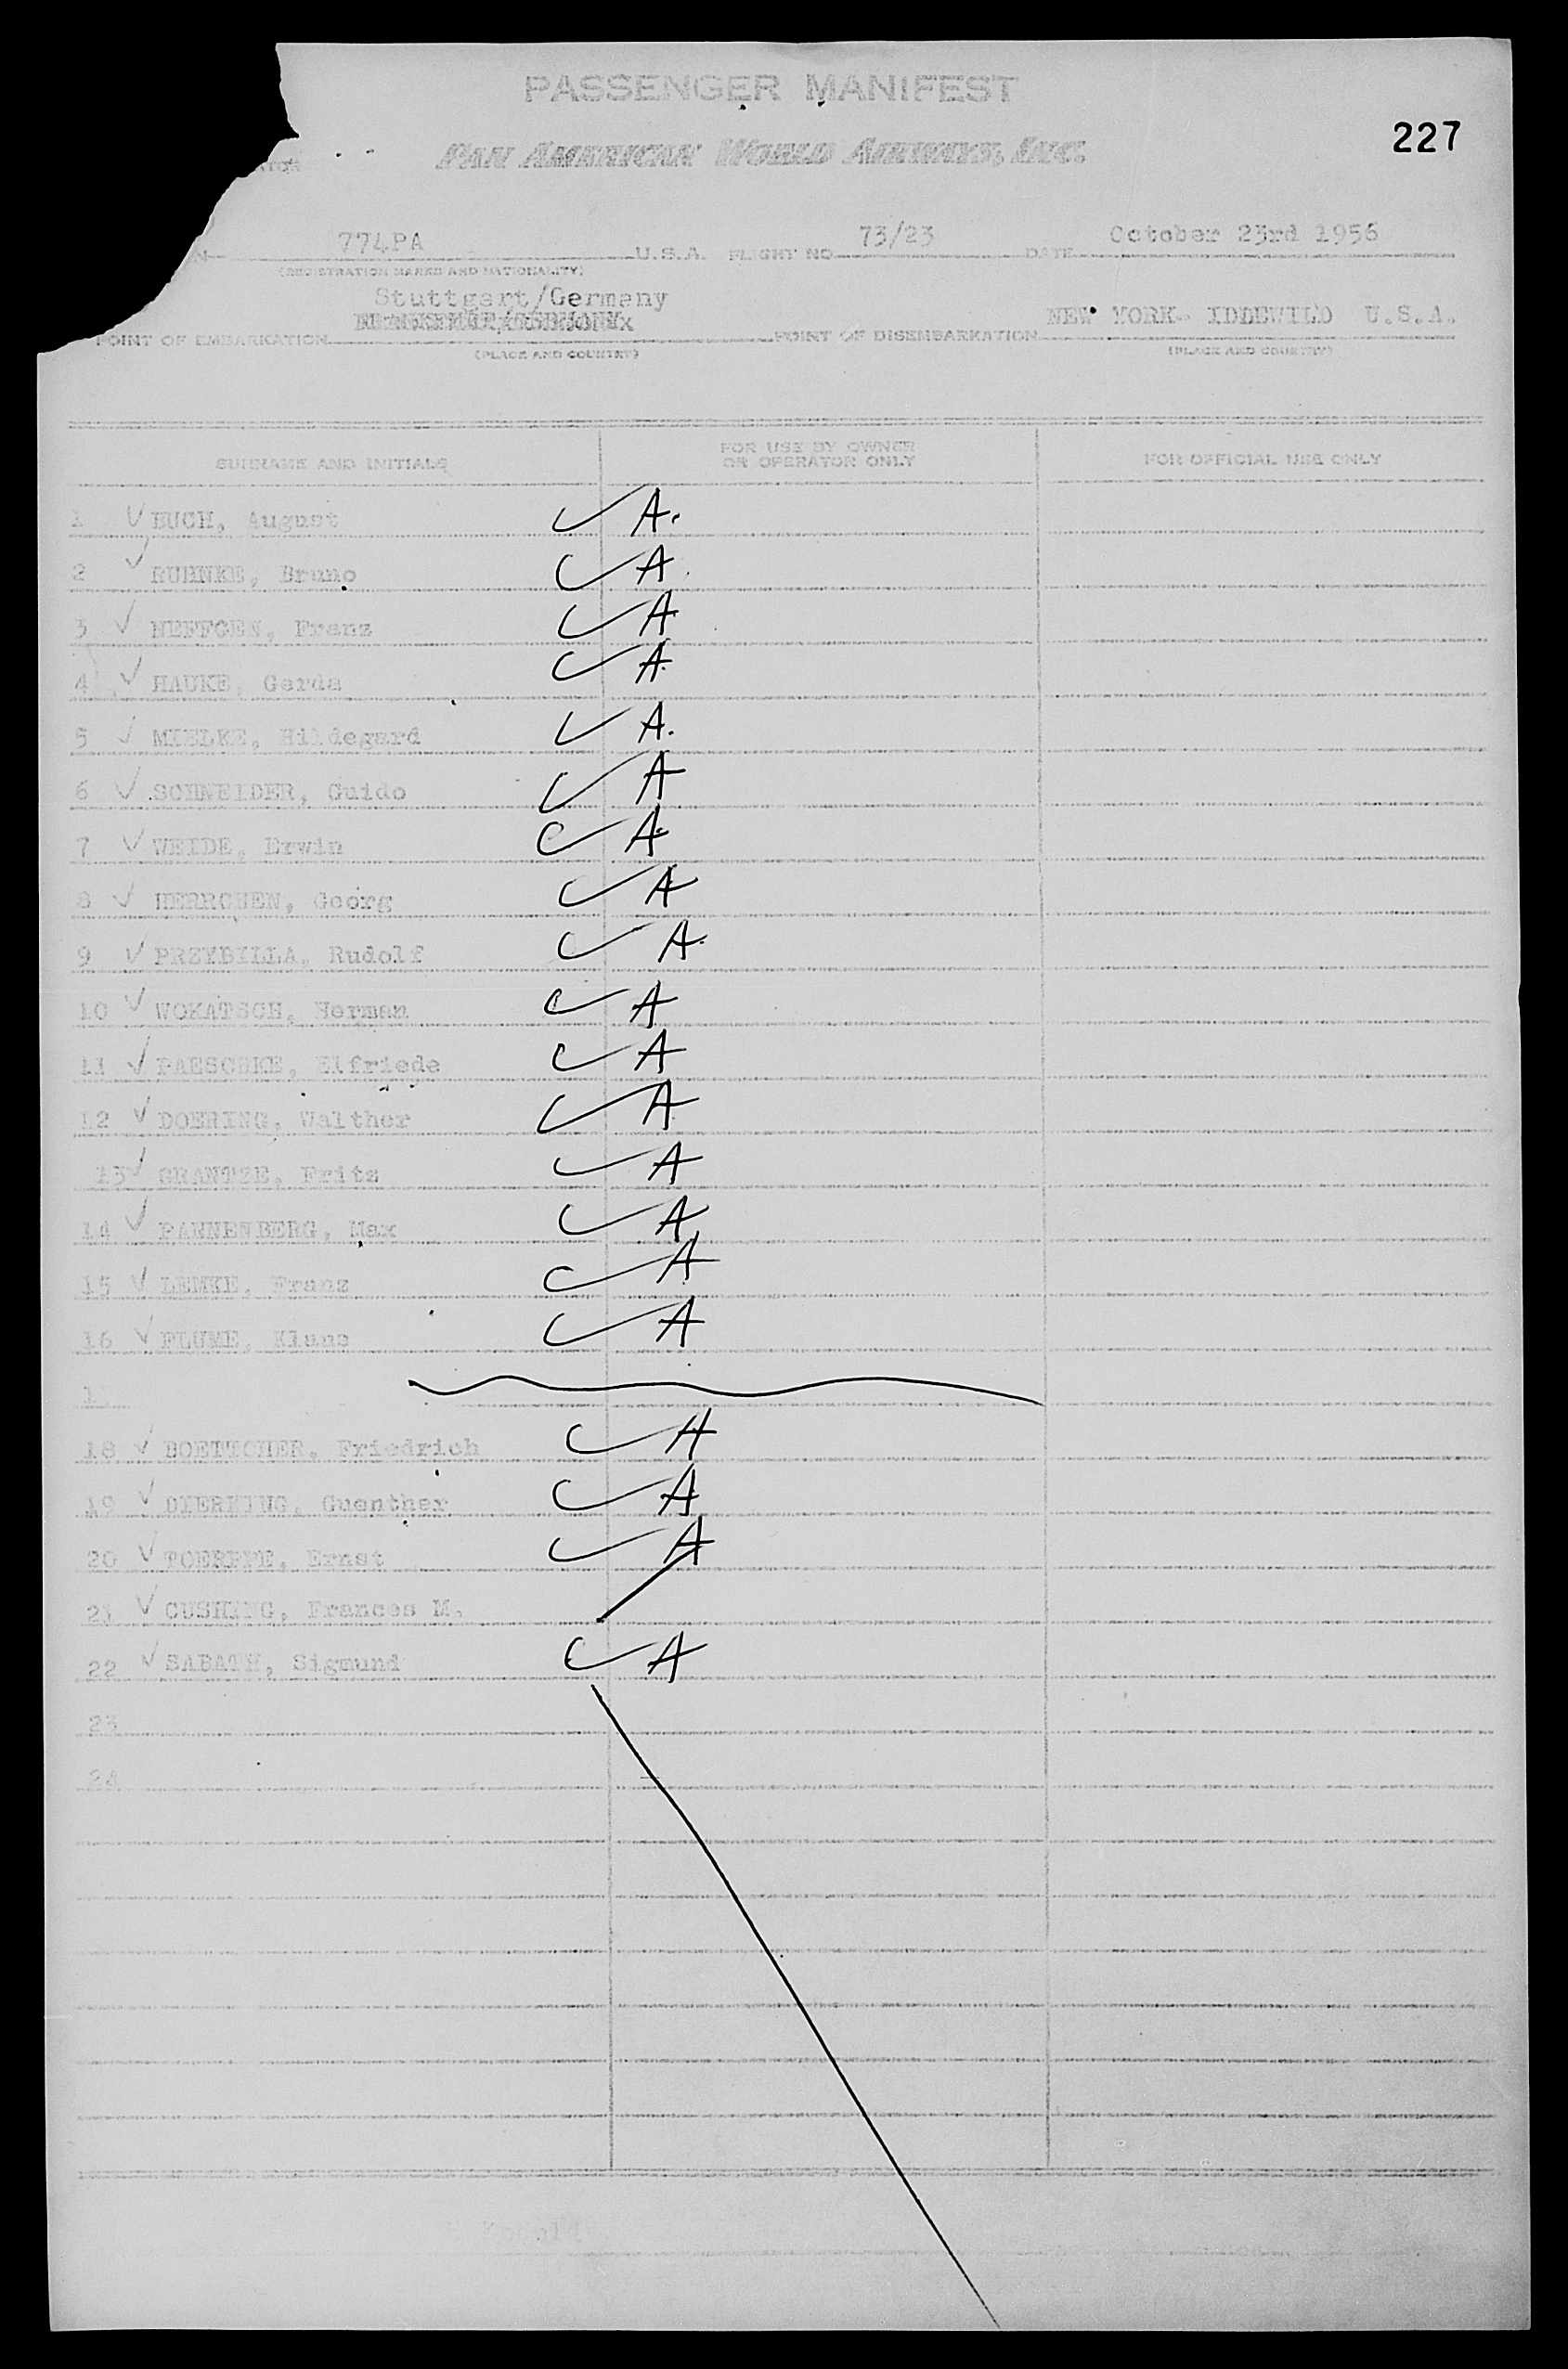 PASSENGER MANIFEST
PAN AMERICAN WORLD AIRWAYS, INC.
227
774PA U.S.A. FLIGHT NO. 73/23 DATE October 23rd 1956
(REGISTRATION MARKS AND NATIONALITY)
Stuttgart/Germany
POINT OF EMBARKATION POINT OF DISEMBARKATION NEW YORK- IDLEWILD U.S.A.
(PLACE AND COUNTRY) (PLACE AND COUNTRY)
SURNAME AND INITIALS FOR USE BY OWNER OR OPERATOR ONLY FOR OFFICIAL USE ONLY
1 ✓ BUCH, August ✓ A.
2 ✓ RUHNKE, Bruno ✓ A.
3 ✓ HEFFGEN, Franz ✓ A.
4 ✓ HAUKE, Gerda ✓ A.
5 ✓ MIELKE, Hildegard ✓ A.
6 ✓ SCHNEIDER, Guido ✓ A
7 ✓ WEIDE, Erwin ✓ A.
8 ✓ Georg ✓ A
9 ✓ PRZYBILLA, Rudolf ✓ A.
10 ✓ WOKATSCH, Herman ✓ A
11 ✓ PAESCHKE, Elfriede ✓ A
12 ✓ DOERING, Walther ✓ A
13 ✓ GRANTZE, Fritz ✓ A
14 ✓ PANNENBERG, Max ✓ A
15 ✓ LEMKE, Franz ✓ A
16 ✓ Klaus ✓ A
18 ✓ BOETTCHER, Friedrich ✓ A
19 ✓ DIERKING, Guenther ✓ A
20 ✓ TOERPPE, Ernst ✓ A
21 ✓ CUSHING, Frances M.
22 ✓ SABATH, Sigmund ✓ A
23
24